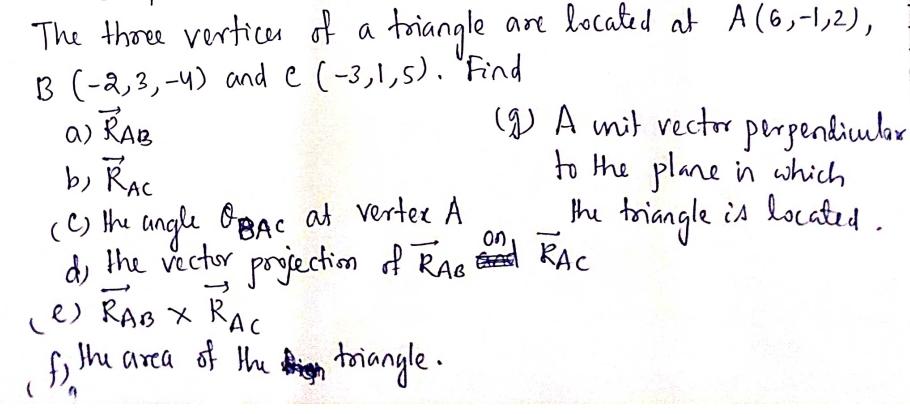 The three vertices of a triangle are located at A(6,-1,2),
B (-2,3,-4) and C (-3,1,5). Find
a) $\vec{R}_{AB}$
b) $\vec{R}_{AC}$
(c) the angle θ_{BAC} at vertex A
d) the vector projection of $\vec{R}_{AB}$ on $\vec{R}_{AC}$
(e) $\vec{R}_{AB}$ × $\vec{R}_{AC}$
(f) the area of the triangle.
(g) A unit vector perpendicular
to the plane in which
the triangle is located.